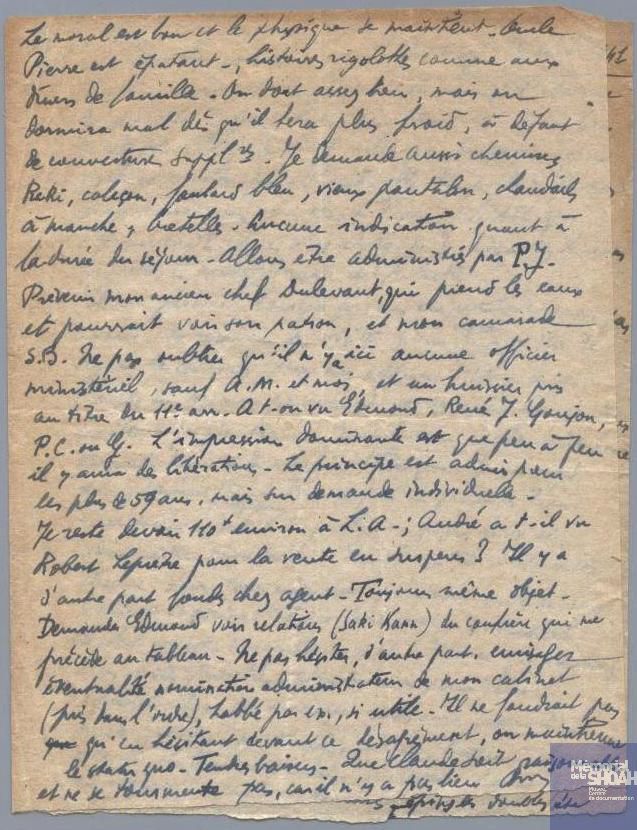 Le moral est bon et le physique se maintient. Oncle
Pierre est épatant -, histoires rigolottes comme aux
diners de famille - On dort assez bien, mais on
dormira mal dès qu'il fera plus froid, à défaut
de couverture suppl res. Je demande aussi chemises
kaki, caleçon, foulard bleu, vieux pantalon, chandails
à manche, bretelles - Aucune indication quant à
la durée du séjour - Allons être administrés par P.J.
Prévenir mon ancien chef Dulevant, qui prend les eaux
et pourrait voir son patron, et mon camarade
S.B. Ne pas oublier qu'il n'y a ici aucune officier
ministériel, sauf A.M. et moi, et un huissier pris
au titre du 11e arr. A t-on vu Edmond, René J. Goujon,
P.C. ou G. L'impression dominante est que peu à peu
il y aura des libérations - Le principe est admis pour
les plus de 59 ans, mais sur demande individuelle -
Je reste devoir 110 environ à L.A -; André a t-il vu
Robert Leprêtre pour la vente en suspens ? Il y a
d'autre part fonds chez agent - Toujours même objet -
Demander Edmond voir relations (Saki Kann) du confrère qui me
précède au tableau - Ne pas hésiter, d'autre part, envisager
éventualité nomination administrateur de mon cabinet
(pris dans l'ordre), habbé par ex., si utile - Il ne faudrait pas
qu'en hésitant devant ce désagrément, on maintienne
le statu quo - Tendres baisers - Que Claude soit
et ne se tourmente pas, car il n'y a pas lieu
épingles doubles
41
Mémorial
de la SHOAH
Musée,
Centre
de documentation